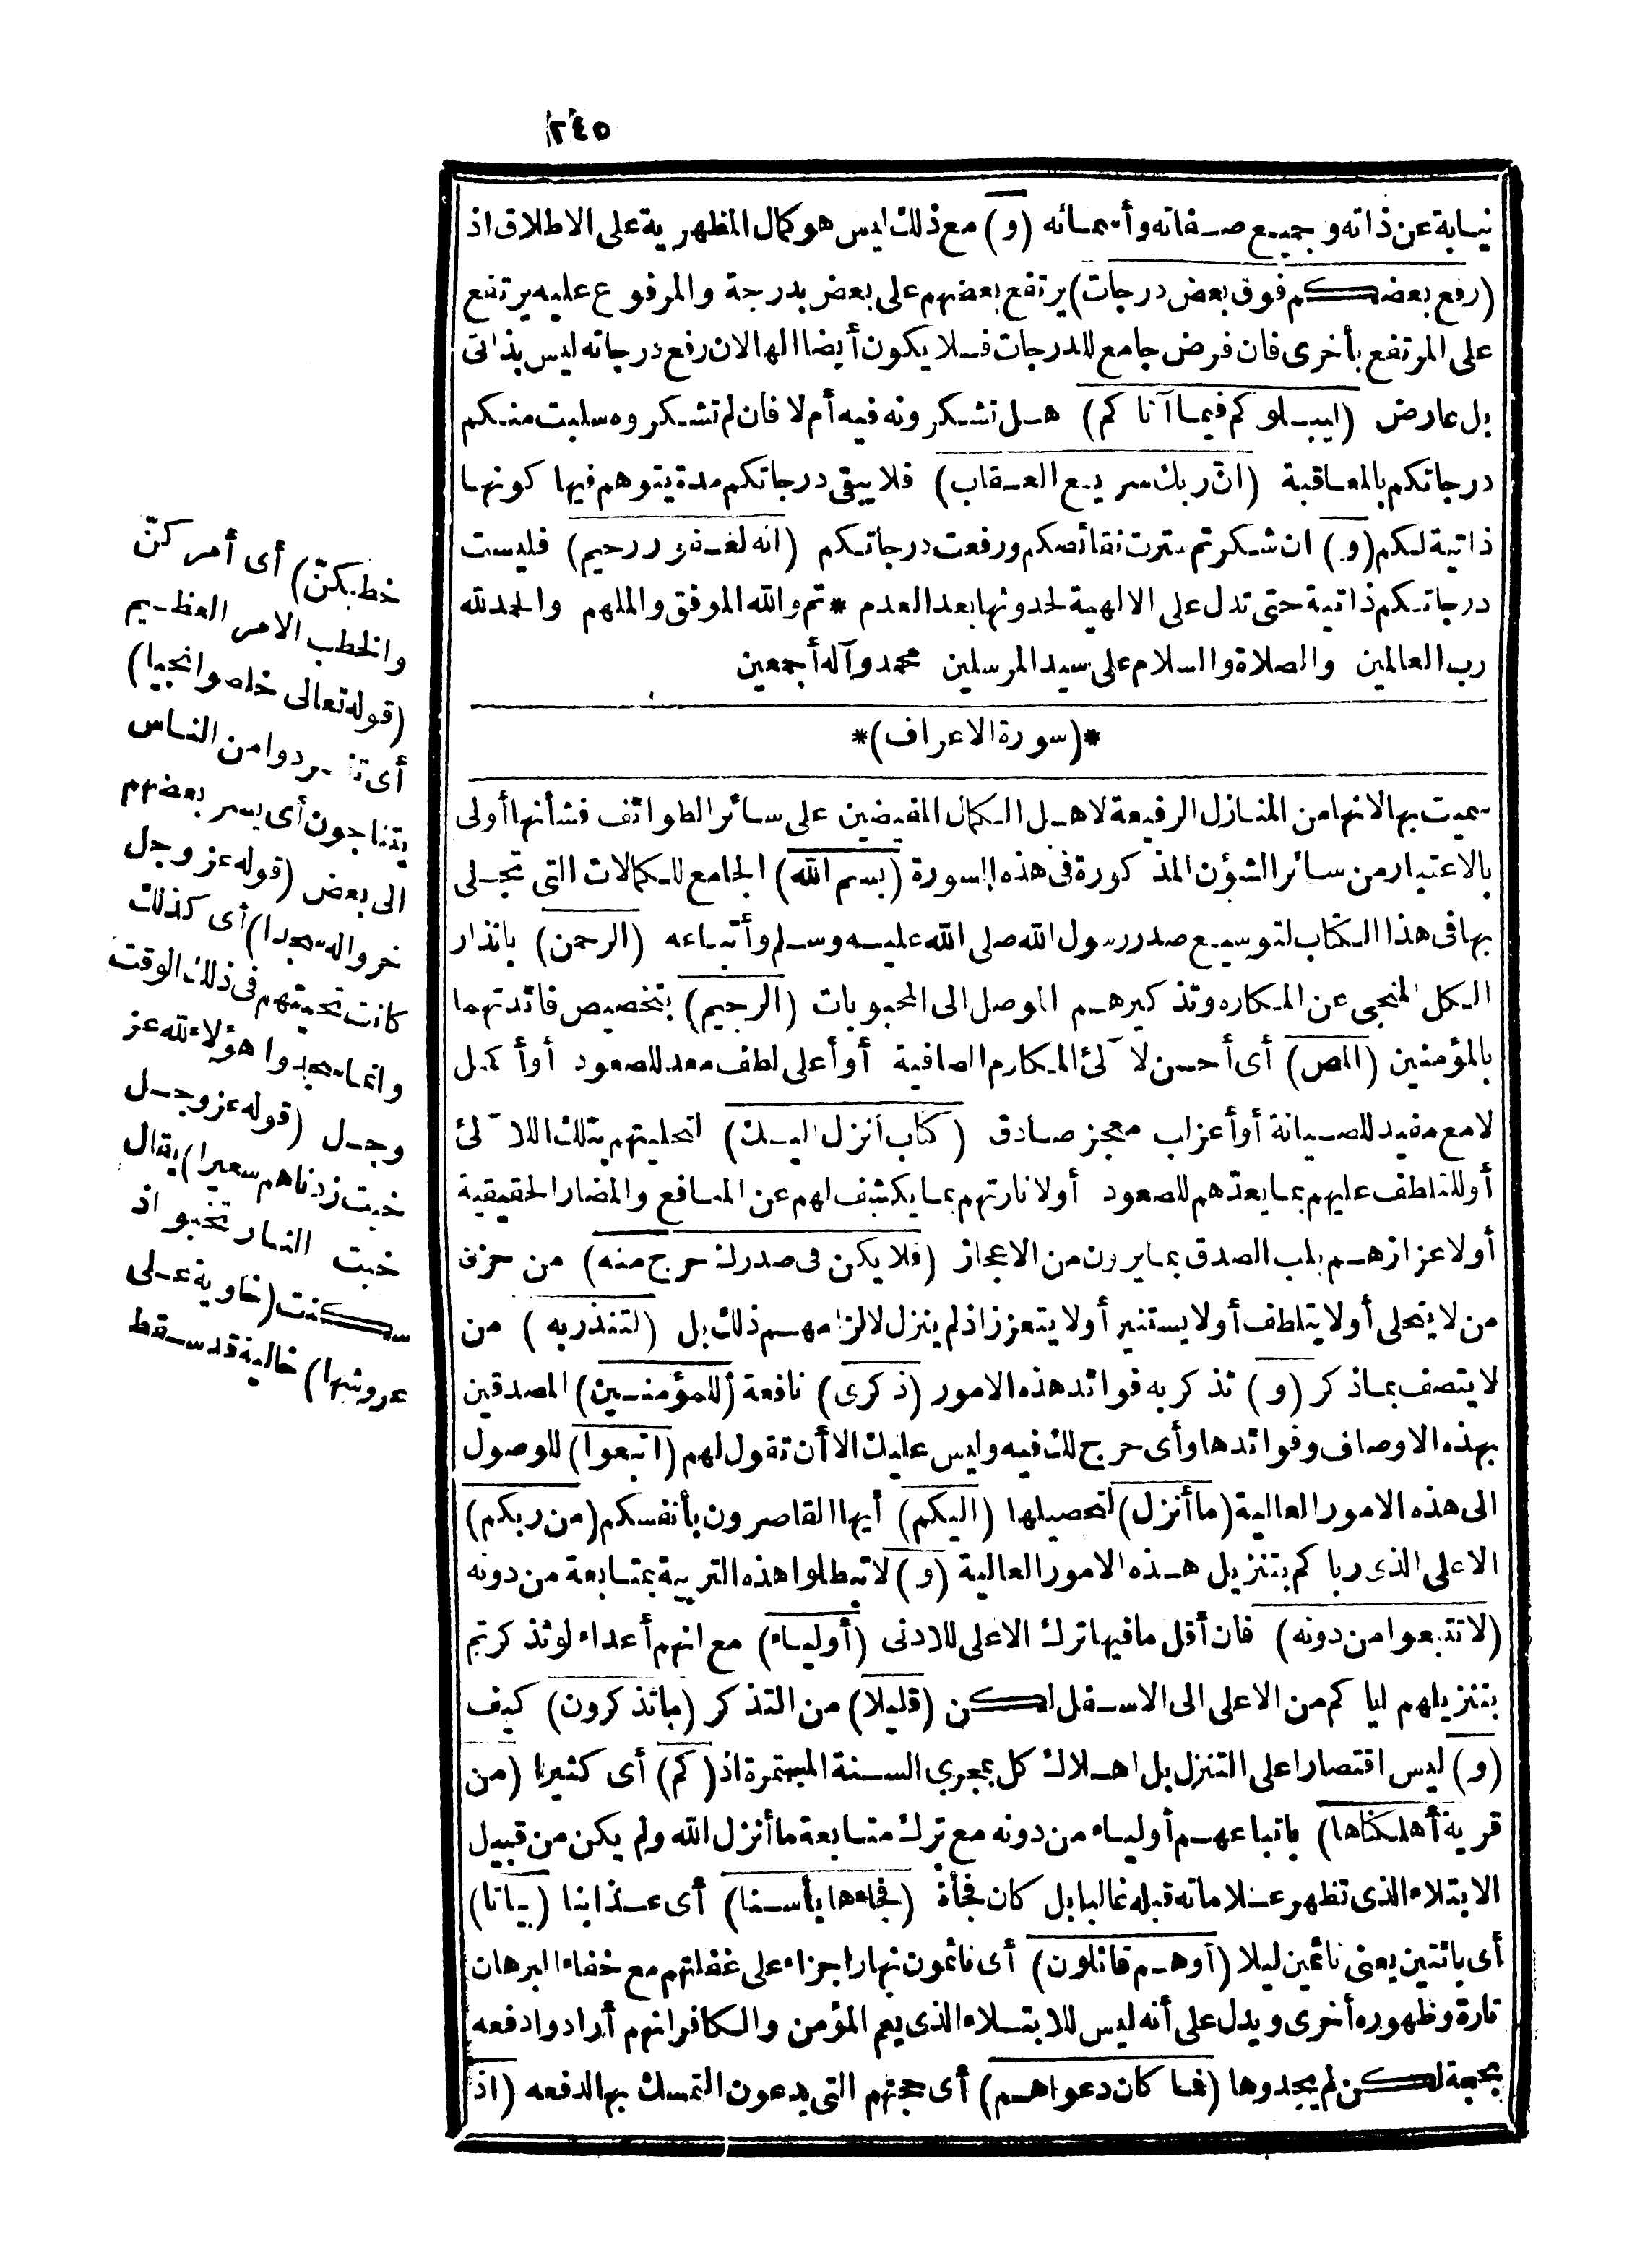 ٢٤٥
نيابة عن ذاته وجميع صفاته وأسمائه (و) مع ذلك ليس هو كمال المظهرية على الاطلاق اذ
(رفع بعضكم فوق بعض درجات) يرتفع بعضهم على بعض بدرجة والمرفوع عليه يرتفع
على المرتفع بأخرى فان فرض جامع للدرجات فلا يكون أيضا الها لان رفع درجاته ليس بذاتى
بل عارض (ليبلوكم فيما آتاكم) هل تشكرونه فيه أم لا فان لم تشكروه سلبت منكم
درجاتكم بالمعاقبة (انّ ربك سريع العقاب) فلا يبقى درجاتكم مدة يتوهم فيها كونها
ذاتية لكم (و) ان شكرتم سترت نقائصكم ورفعت درجاتكم (انه لغفور رحيم) فليست
درجاتكم ذاتية حتى تدل على الالهية لحدوثها بعد العدم * تم والله الموفق والملهم والحمد لله
رب العالمين والصلاة والسلام على سيد المرسلين محمد وآله أجمعين
*(سورة الاعراف)*
سميت بها لانها من المنازل الرفيعة لاهل الكمال المفيضين على سائر الطوائف فشأنها أولى
بالاعتبار من سائر الشؤن المذكورة فى هذه السورة (بسم الله) الجامع للكمالات التى تجلى
بها فى هذا الكتاب لتوسيع صدر رسول الله صلى الله عليه وسلم وأتباعه (الرحمن) بانذار
الكل المنجى عن المكاره وتذكيرهم الموصل الى المحبوبات (الرحيم) بتخصيص فائدتهما
بالمؤمنين (المص) أى أحسن لآلئ المكارم الصافية أو أعلى لطف معد للصعود أو أكمل
لامع مفيد للصيانة أو أعزاب معجز صادق (كتاب أنزل اليك) لتحليتهم بتلك اللآلئ
أو للتلطف عليهم بما يعدّهم للصعود أو لانارتهم بما يكشف لهم عن المنافع والمضار الحقيقية
أو لاعزازهم بلب الصدق بما يرون من الاعجاز (فلا يكن فى صدرك حرج منه) من حزن
من لا يتحلى أو لا يتلطف أو لا يستنير أو لا يتعزز اذ لم ينزل لالزامهم ذلك بل (لتنذر به) من
لا يتصف بما ذكر (و) تذكر به فوائد هذه الامور (ذكرى) نافعة (للمؤمنين) المصدقين
بهذه الاوصاف وفوائدها وأى حرج لك فيه وليس عليك الا أن تقول لهم (اتبعوا) للوصول
الى هذه الامور العالية (ما أنزل) لتحصيلها (اليكم) أيها القاصرون بأنفسكم (من ربكم)
الاعلى الذى رباكم بتنزيل هذه الامور العالية (و) لا تبطلوا هذه التربية بمتابعة من دونه
(لا تتبعوا من دونه) فان أقل ما فيها ترك الاعلى للادنى (أولياء) مع انهم أعداء لو تذكرتم
بتنزيلهم اياكم من الاعلى الى الاسفل لكن (قليلا) من التذكر (ما تذكرون) كيف
(و) ليس اقتصارا على التنزل بل اهلاك كل بمجرى السنة المستمرة اذ (كم) أى كثيرا (من
قرية أهلكناها) باتباعهم أولياء من دونه مع ترك متابعة ما أنزل الله ولم يكن من قبيل
الابتلاء الذى تظهر علاماته قبله غالبا بل كان فجأة (فجاءها بأسنا) أى عذابنا (بياتا)
أى بائتين يعنى نائمين ليلا (أوهم قائلون) أى نائمون نهارا جزاء على غفلتهم مع خفاء البرهان
تارة وظهوره أخرى ويدل على أنه ليس للابتلاء الذى يعم المؤمن والكافر انهم أرادوا دفعه
بحجة لكن لم يجدوها (فما كان دعواهم) أى حجتهم التى يدعون التمسك بها لدفعه (اذ
خطبكنّ) أى أمركنّ
والخطب الامر العظيم
(قوله تعالى خلصوا نجيا)
أى تفردوا من الناس
يتناجون أى يسر بعضهم
الى بعض (قوله عز وجل
خروا له سجدا) أى كذلك
كانت تحيتهم فى ذلك الوقت
وانما سجدوا هؤلاء لله عز
وجل (قوله عز وجل
خبت زدناهم سعيرا) يقال
خبت النار تخبو اذ
سكنت (خاوية على
عروشها) خالية قد سقط